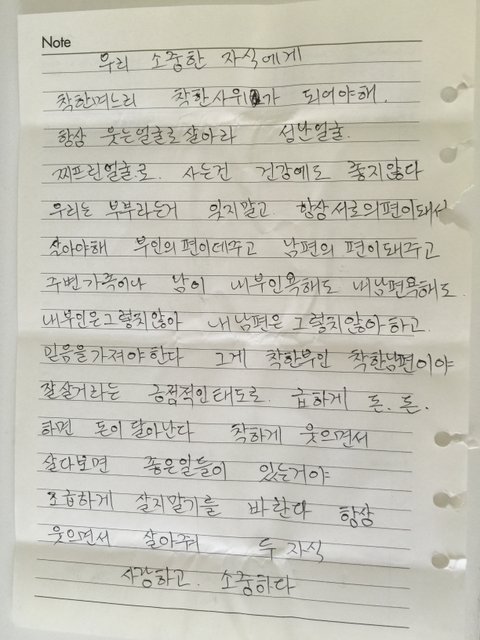 Note
우리 소중한 자식에게
착한며느리 착한사위가 되어야해.
항상 웃는얼굴로살아라 성난얼굴.
찌프린얼굴로. 사는건 건강에도 좋지않다
우리는 부부라는거 잊지말고. 항상서로의편이돼서
살아야해 부인의편이데주고 남편의 편이돼주고
주변가족이나 남이 내부인욕해도 내남편욕해도.
내부인은그렇지않아 내남편은그렇지않아하고.
믿음을가져야한다 그게 착한부인 착한남편이야
잘살거라는 긍점적인태도로. 급하게 돈. 돈.
하면 돈이달아난다 착하게 웃으면서
살다보면 좋은일들이 있는거야
조급하게 살지말기를 바한다 항상
웃으면서 살아줘 두자식
사랑하고. 소중하다